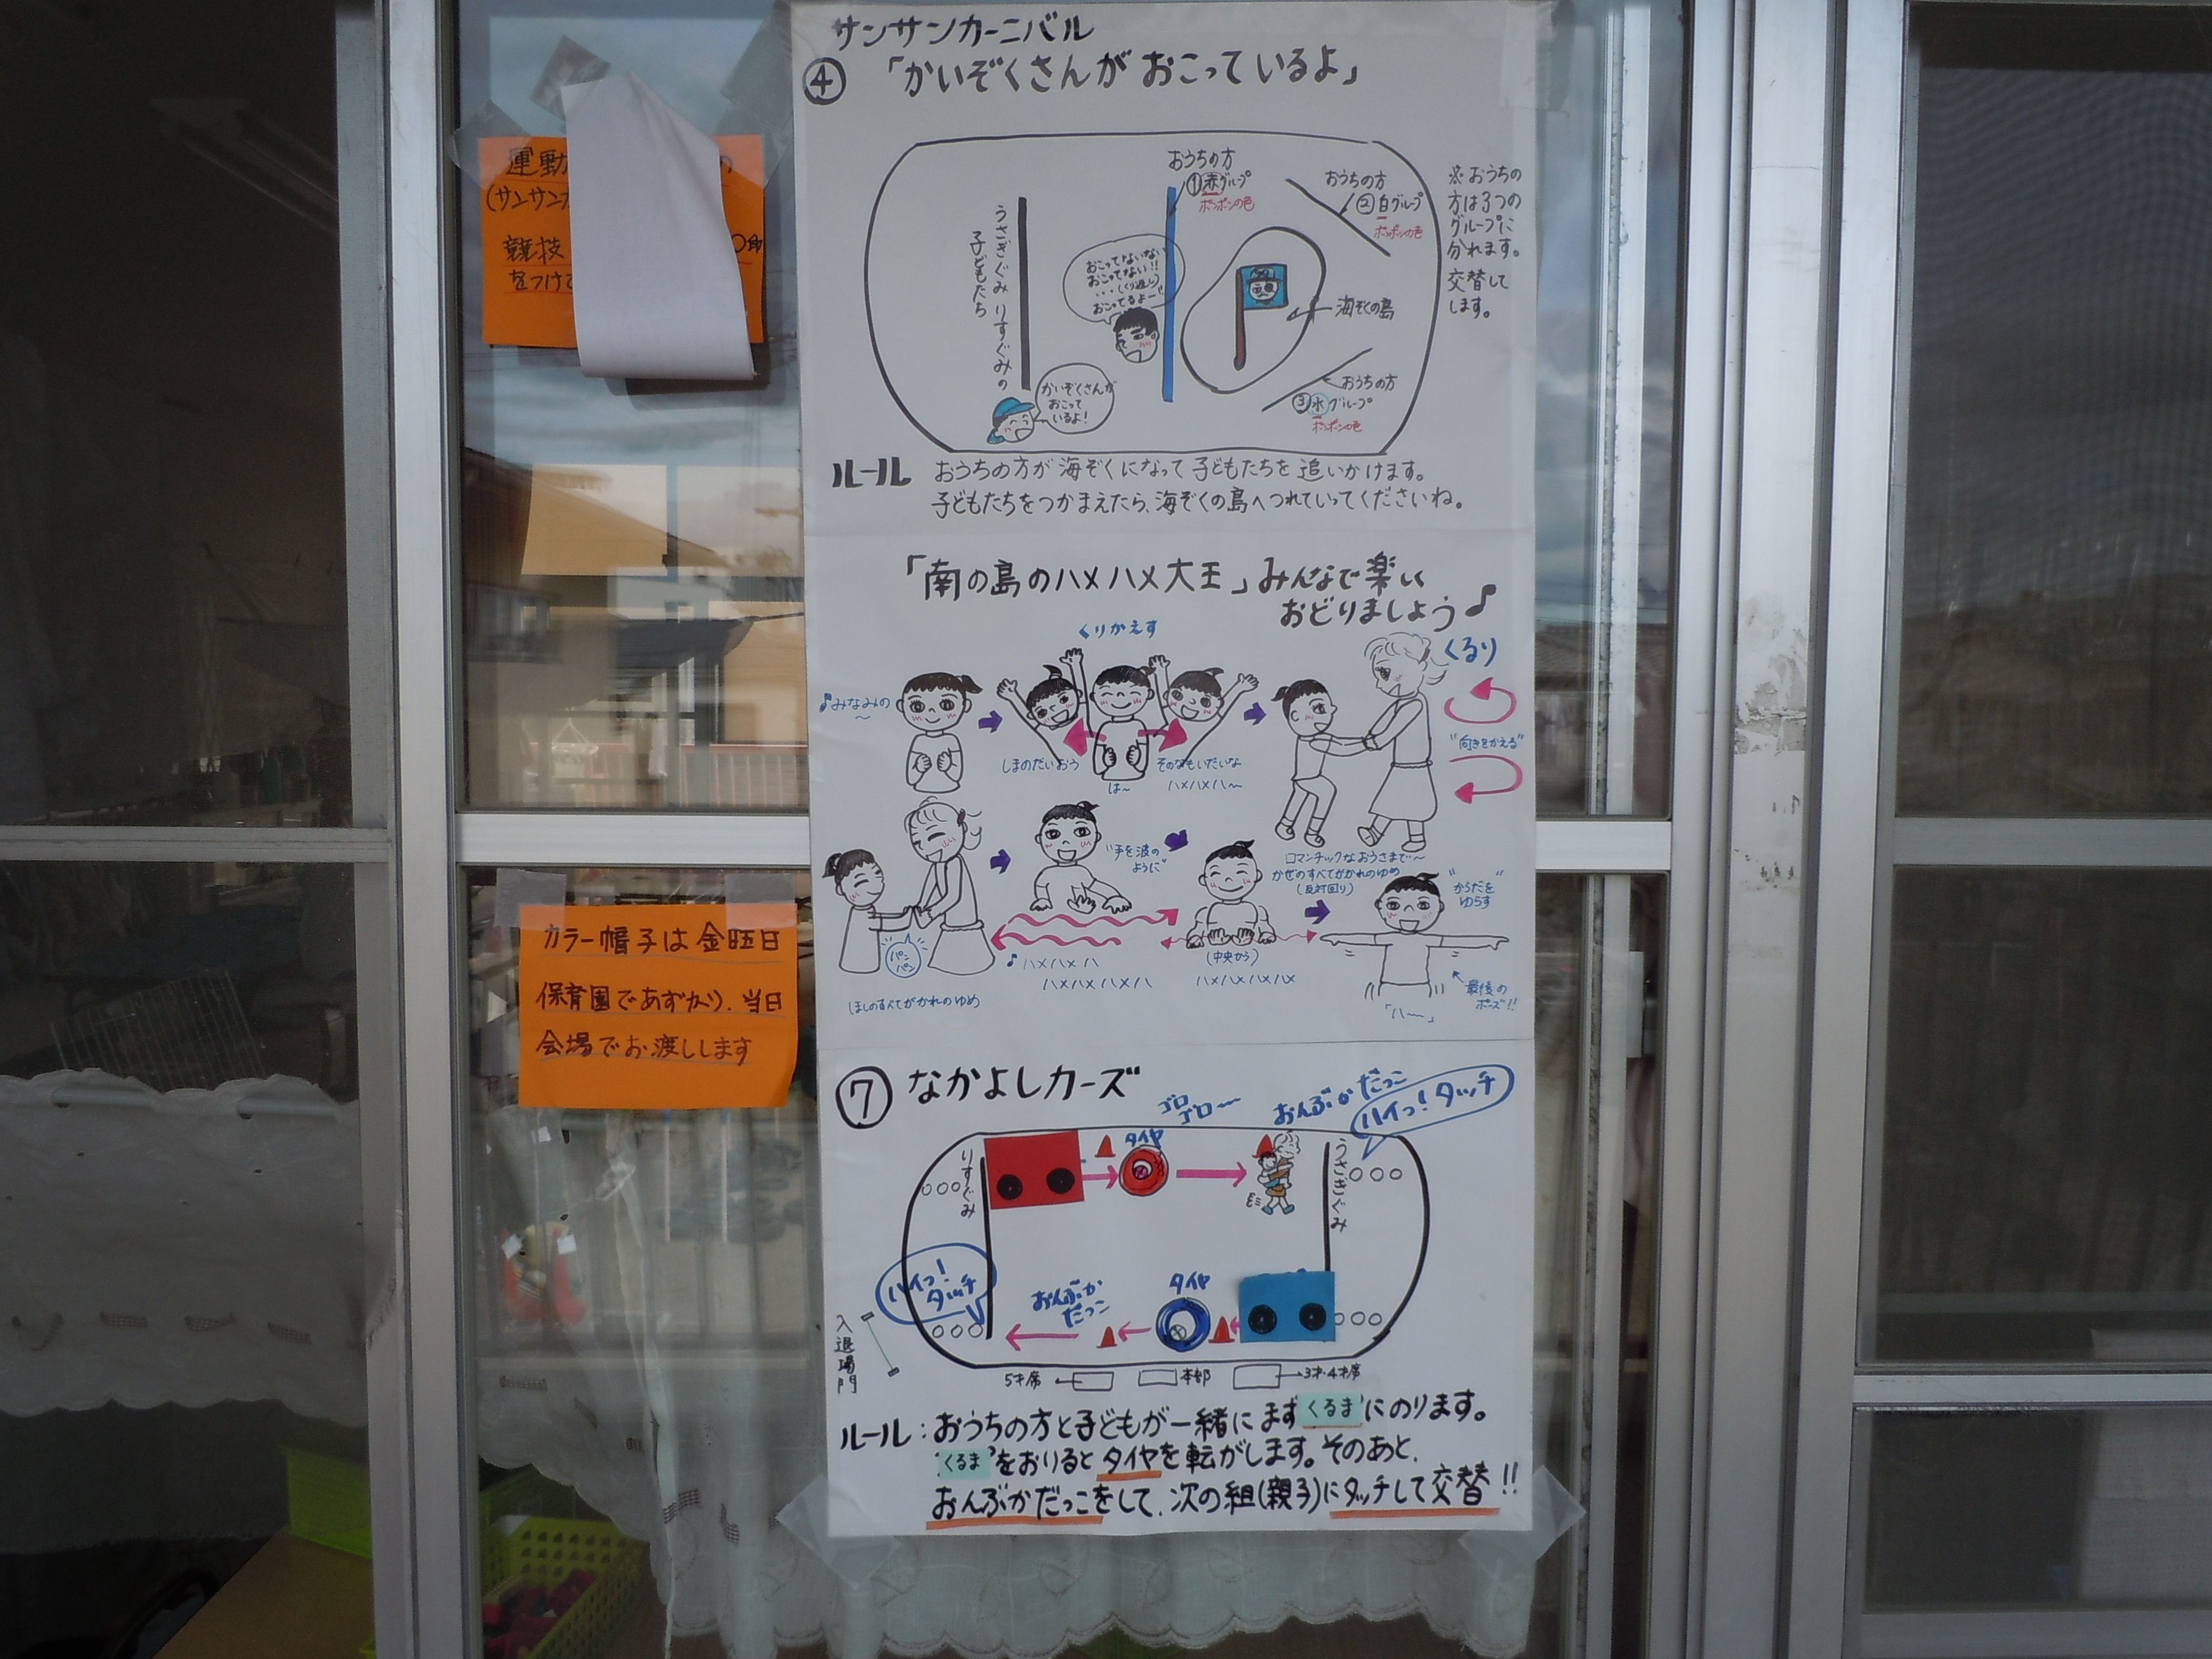 サンサンカーニバル
④ 「かいぞくさんが おこっているよ」
おうちの方
①赤グループ
ポンポンの色
おうちの方
②白グループ
ポンポンの色
※おうちの
方は3つの
グループに
分れます。
交替して
します。
うさぎぐみ りすぐみの
子どもたち
おこってないない
おこってない!!
・・・(くり返し)
おこってるよー!!
海ぞくの島
かいぞくさんが
おこって
いるよ!
おうちの方
③水グループ
ポンポンの色
ルール おうちの方が 海ぞくになって 子どもたちを 追いかけます。
子どもたちをつかまえたら、海ぞくの島へつれていってくださいね。
「南の島のハメハメ大王」みんなで楽しく
おどりましょう♪
くりかえす
くるり
♪みなみの〜
しまのだいおう
は〜
そのなもいだいな
ハメハメハ〜
"向きをかえる"
ロマンチックなおうさまで〜
かぜのすべてがかれのゆめ
(反対回り)
"手を波の
ように"
"からだを
ゆらす"
パン
パン
ほしのすべてがかれのゆめ
♪ハメハメハ
ハメハメハメハ
(中央から)
ハメハメハメハメ
最後の
ポーズ!!
「ハ〜」
⑦ なかよしカーズ
ゴロ
ゴロ〜
おんぶかだっこ
ハイっ!タッチ
タイヤ
りすぐみ
うさぎぐみ
ハイっ!
タッチ
おんぶか
だっこ
タイヤ
入退場門
5才席
本部
3才・4才席
ルール:おうちの方と子どもが一緒にまず くるま にのります。
くるま をおりるとタイヤを転がします。そのあと、
おんぶかだっこをして、次の組(親子)にタッチして交替!!
運動
(サンサンカ
競技
をつけて
カラー帽子は金曜日
保育園であずかり、当日
会場でお渡しします